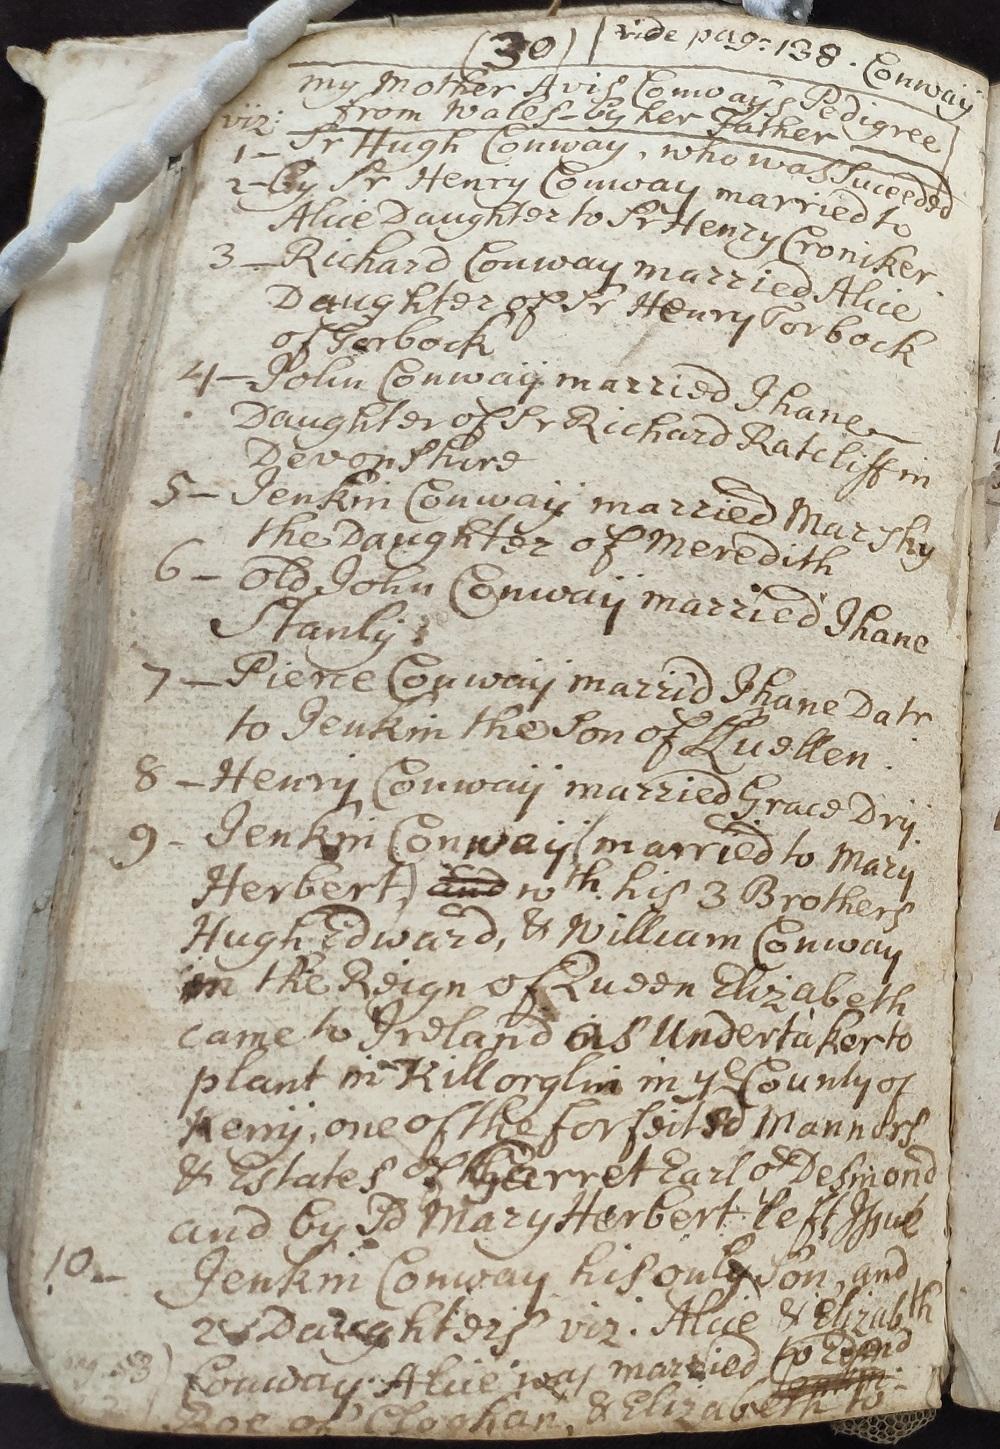 (30) | vide pag: 138. Conway
my Mother Avis Conway's Pedigree
viz: from Wales by her Father
1 - Sr Hugh Conway, who was Suceeded
2 - by Sr Henry Conway married to
Alice Daughter to Sr Henry Croniker.
3 - Richard Conway married Alice
Daughter of Sr Henry Torbock
of Torbock
4 - John Conway married Jhane
Daughter of Sr Richard Ratcliff in
Devonshire
5 - Jenkin Conway married Marsky
the Daughter of Meredith
6 - old John Conway married Jhane
Stanly;
7 - Pierce Conway married Jhane Datr
to Jenkin the Son of Lluellen.
8 - Henry Conway married Grace Dry
9 - Jenkin Conway (married to Mary
Herbert) and wth. his 3 Brothers
Hugh Edward, & William Conway
in the Reign of Queen Elizabeth
came to Ireland as Undertaker to
plant in Killorglin in ye County of
Kerry, one of the forfeited Mannors
& Estates of Garret Earl of Desmond
and by sd Mary Herbert left Issue
10 - Jenkin Conway his only Son, and
2 Daughters viz. Alice & Elizabth
Conway. Alice was married to Edmd
Roe of Cloghan, & Elizabeth to